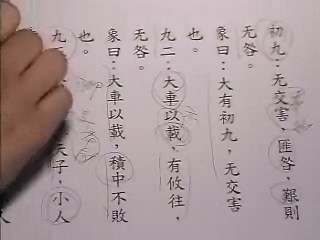 初九：无交害，匪咎，艱則
无咎。
象曰：大有初九，无交害
也。
九二：大車以載，有攸往，
无咎。
象曰：大車以載，積中不敗
也。
九
天子，小人